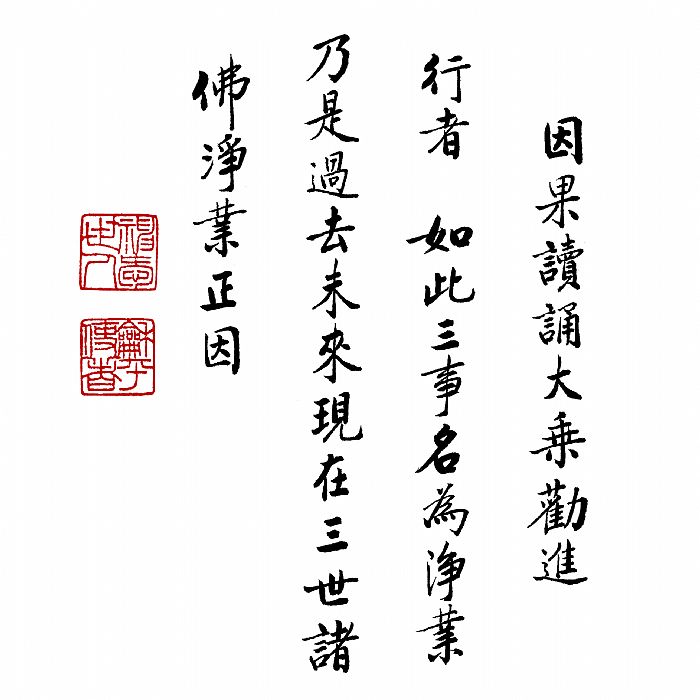 因果讀誦大乘勸進
行者 如此三事名為淨業
乃是過去未來現在三世諸
佛淨業正因